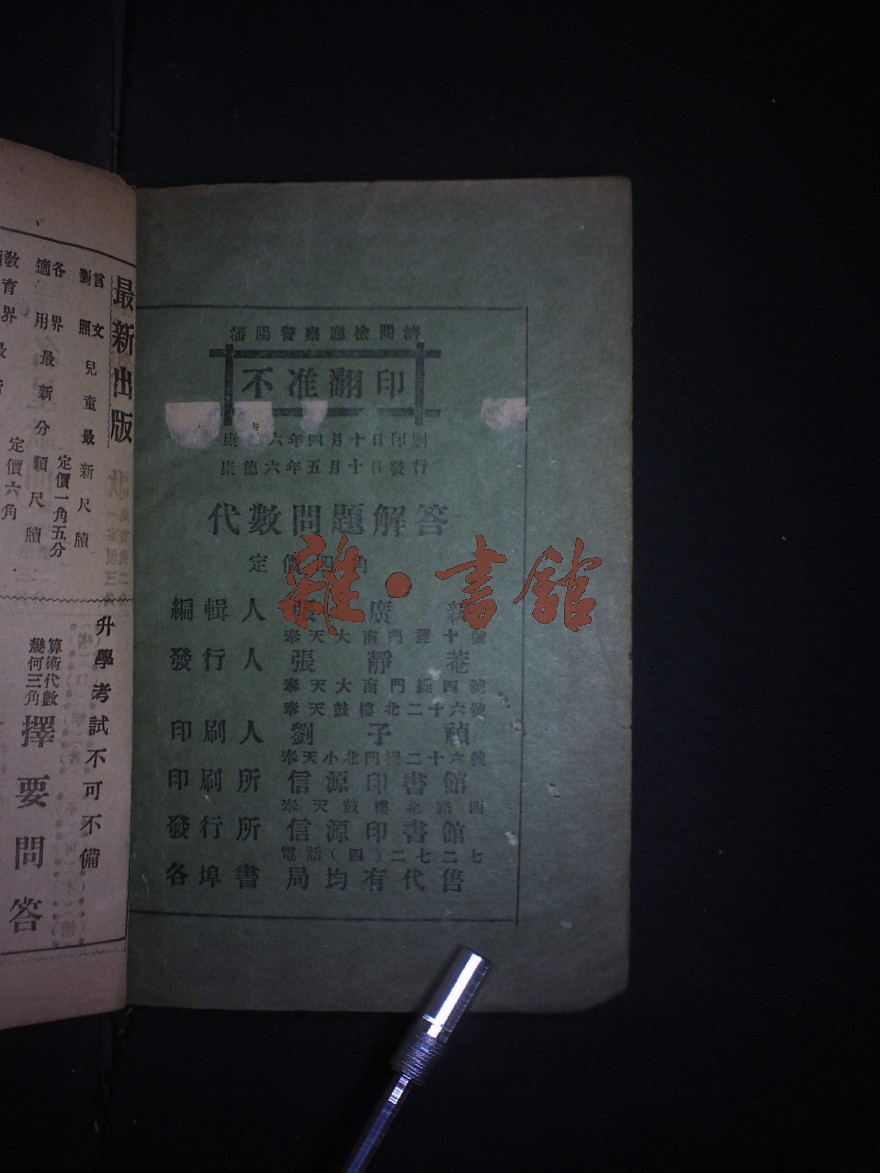 瀋陽警察廳檢閱濟
不准翻印
康德六年四月十日印刷
康德六年五月十日發行
代數問題解答
定價四角
編輯人 廣新
奉天大南門裡十號
發行人 張靜菴
奉天大南門裡四號
奉天鼓樓北二十六號
印刷人 劉子禎
奉天小北門裡二十六號
印刷所 信源印書館
奉天鼓樓北路西
發行所 信源印書館
電話(四)二七二七
各埠書局均有代售
雜·書館
最新出版
言文對照兒童最新尺牘
定價一角五分
各界適用最新分類尺牘
定價六角
教育界最新
升學考試不可不備
算術代數
幾何三角
擇要問答